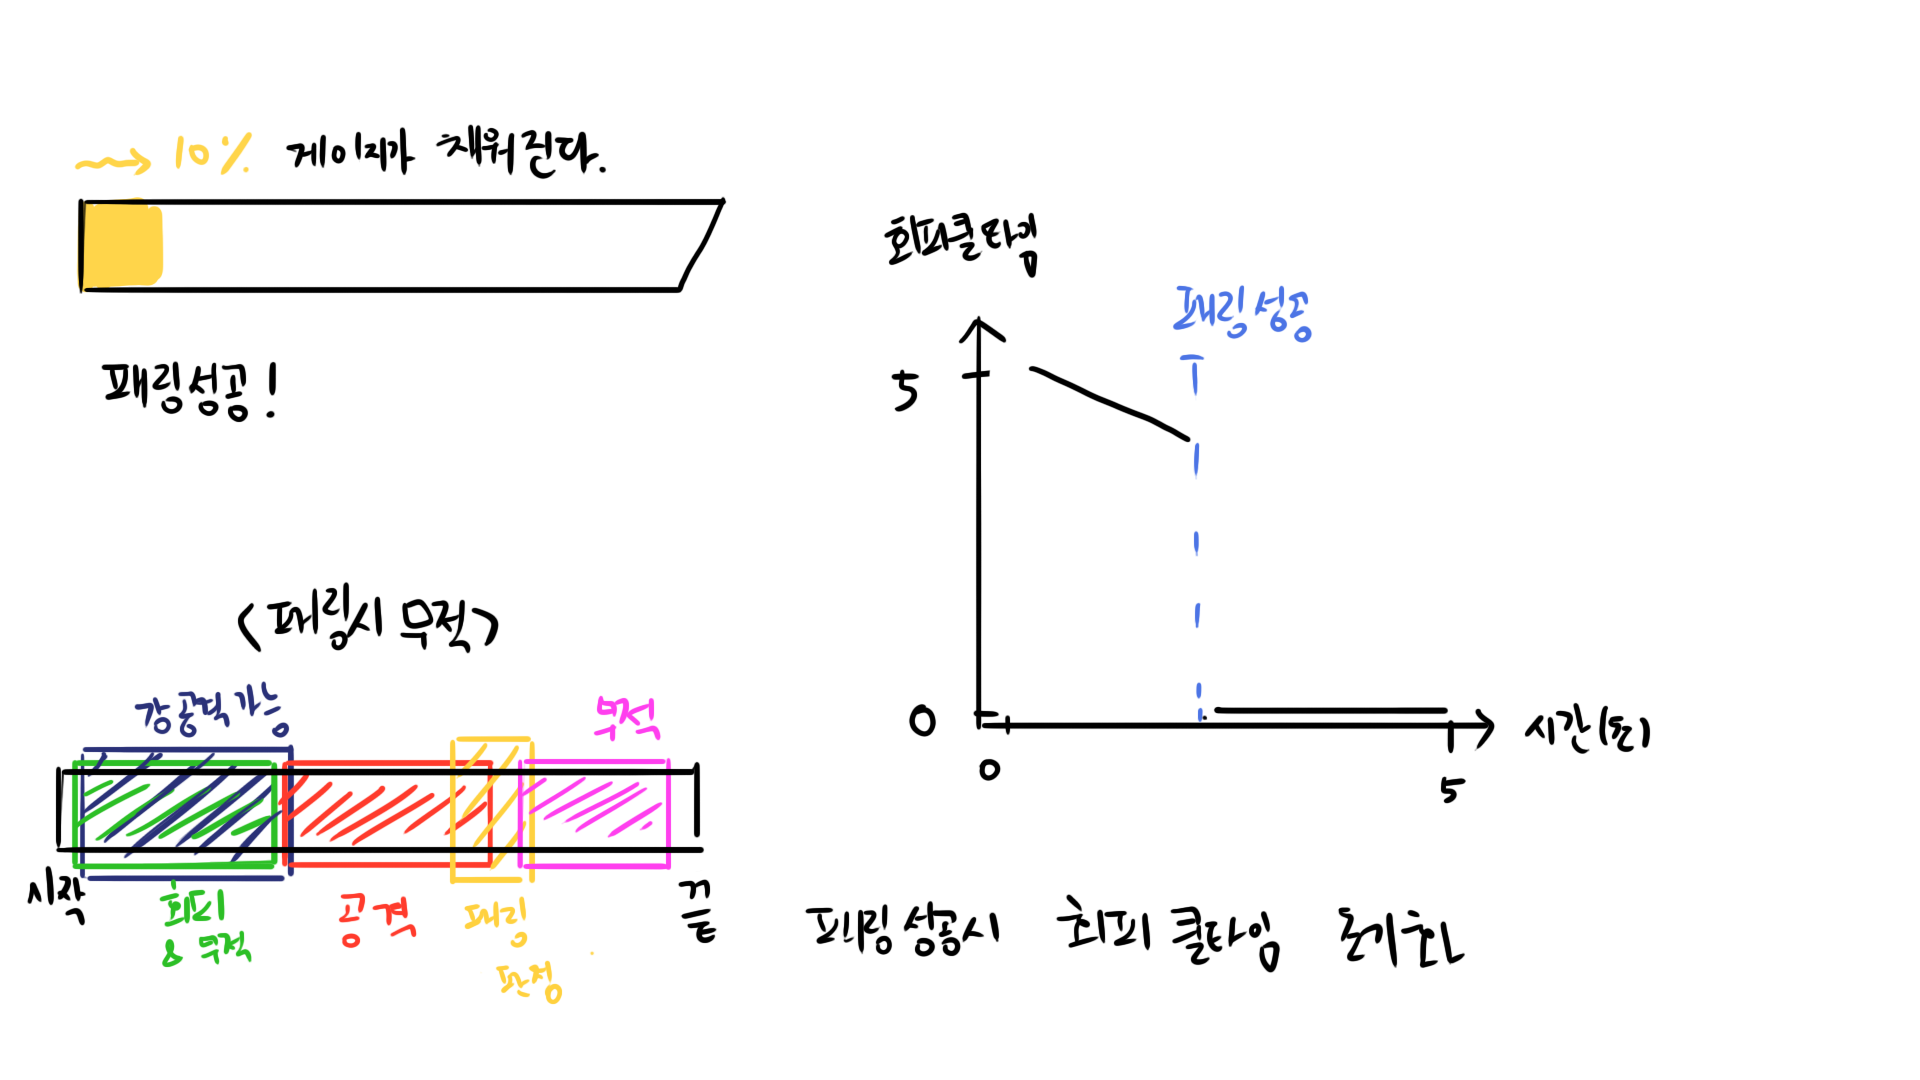 10% 게이지가 채워진다.
패링성공!
<패링시 무적>
강공격가능
무적
시작
회피
& 무적
공격
패링
판정
끝
회피쿨타임
패링성공
5
0
0
5
시간(초)
패링 성공시 회피 쿨타임 초기화